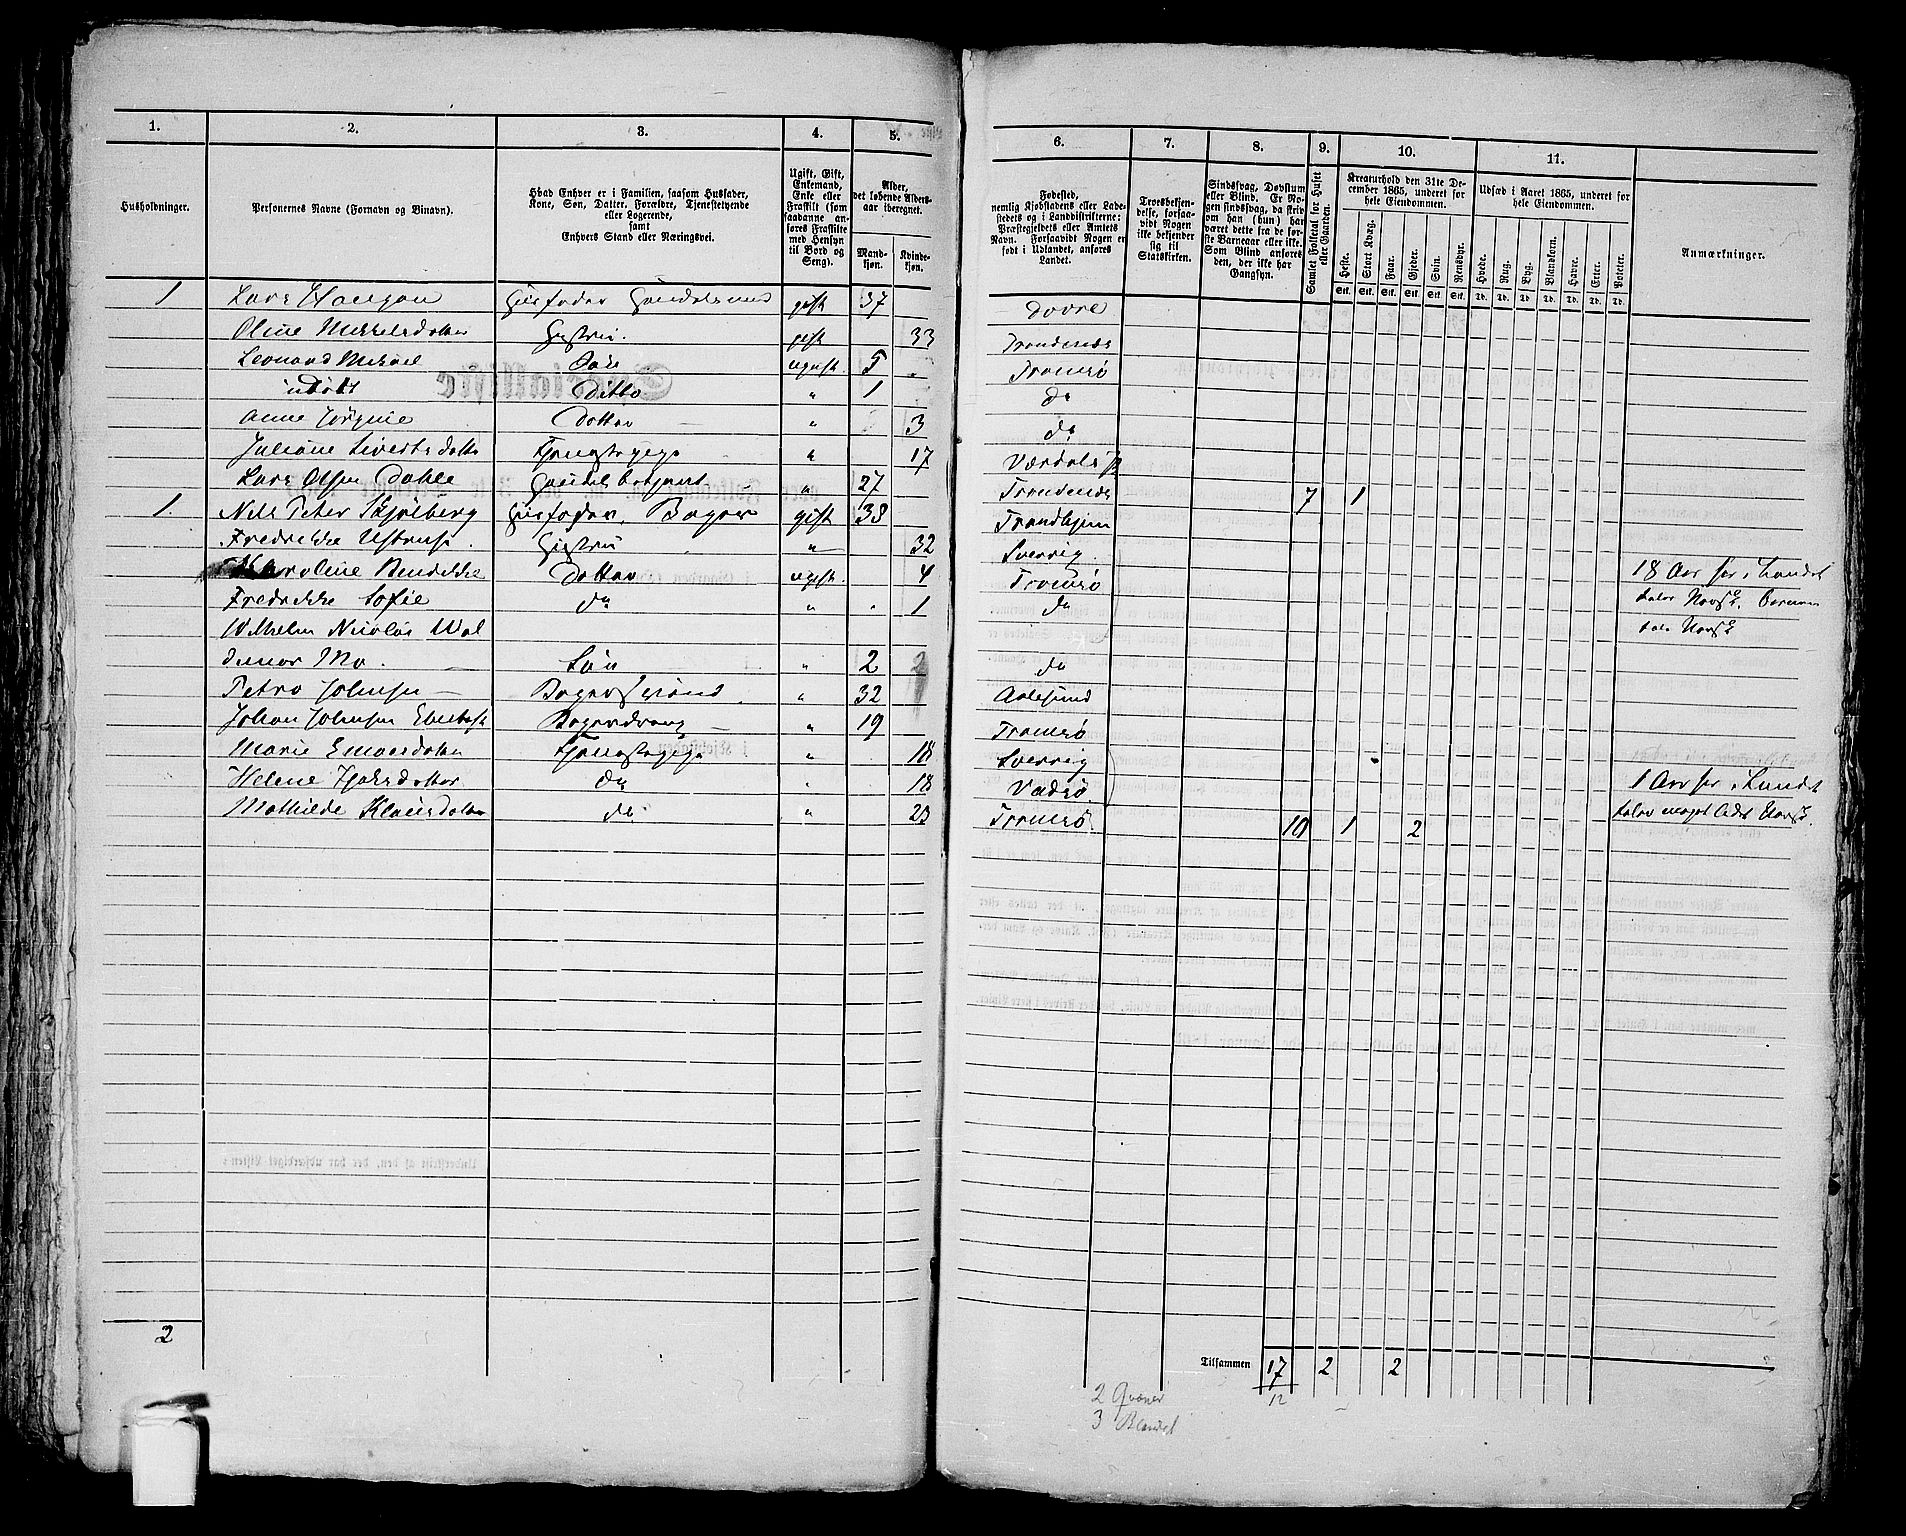 1. 2. 3. 4. 5.
Husholdninger.
Personernes Navne (Fornavn og Binavn).
Hvad Enhver er i Familien, saasom Husfader,
Kone, Søn, Datter, Forældre, Tjenestetyende
eller Logerende,
samt
Enhvers Stand eller Næringsvei.
Ugift, Gift,
Enkemand,
Enke eller
Fraskilt (som
saadanne anføres
Fraskilte
med Hensyn
til Bord og
Seng).
Alder,
det løbende Aldersaar
iberegnet.
Mandkjøn.
Kvindekjøn.
6. 7. 8. 9. 10. 11.
Fødested,
nemlig Kjøbstadens eller Ladestedets
og i Landdistrikterne:
Præstegjeldets eller Amtets
Navn. Forsaavidt Nogen er
født i Udlandet, anføres
Landet.
Troesbekjendelse,
forsaavidt
Nogen
ikke bekjender
sig til
Statskirken.
Sindssvag, Døvstum
eller Blind. Er Nogen
sindssvag, da skriv
om han (hun) har
været dette fra de første
Barneaar eller ikke.
Som Blind anføres
den, der ikke har
Gangsyn.
Samlet Folketal for Huset
eller Gaarden.
Kreaturhold den 31te December
1865, underet for
hele Eiendommen.
Heste. Stort Kvæg. Faar. Gjeder. Svin. Rensdyr.
Stk. Stk. Stk. Stk. Stk. Stk.
Udsæd i Aaret 1865, underet for
hele Eiendommen.
Hvede. Rug. Byg. Blandkorn. Havre. Erter. Poteter.
Td. Td. Td. Td. Td. Td. Td.
Anmærkninger.
1 Lars Haugan Husfader gift 37 Dovre
Oline gift 33 Trondenæs
Leonard Mikael Søn ugift. 5 Tromsø
udøbt Ditto " 1 do
Anne Jørgine Datter " 3 do
Juliane Sivertsdatter Tjenestepige " 17
Lars Olsen Dahle " 27 Trondenæs 7 1
1. Nils Peter Skjølberg Husfader, Bager gift 38 Trondhjem
Fredrikke Hustru " 32 Sverrig.
Karoline Bendikke Datter ugift. 4 Tromsø 18 Aar her i Landet
Fredrikke Sofie do " 1 do taler Norsk.
Wilhelm Nicolai Wal
demar Mo. Søn " 2 do tale Norsk
Petro Johnsen Bagersvend " 32 Aalesund
Johan Johnsen Bagerdreng " 19 Tromsø
Marie Tjenestepige " 18 Sverrig
Helene do " 18 Vadsø 1 Aar her i Landet
Mathilde Klausdatter do " 23 Tromsø. 10 1 2 taler meget lidet Norsk.
2
Tilsammen 17 2 2
12
2 Qvæner
3 Blandet